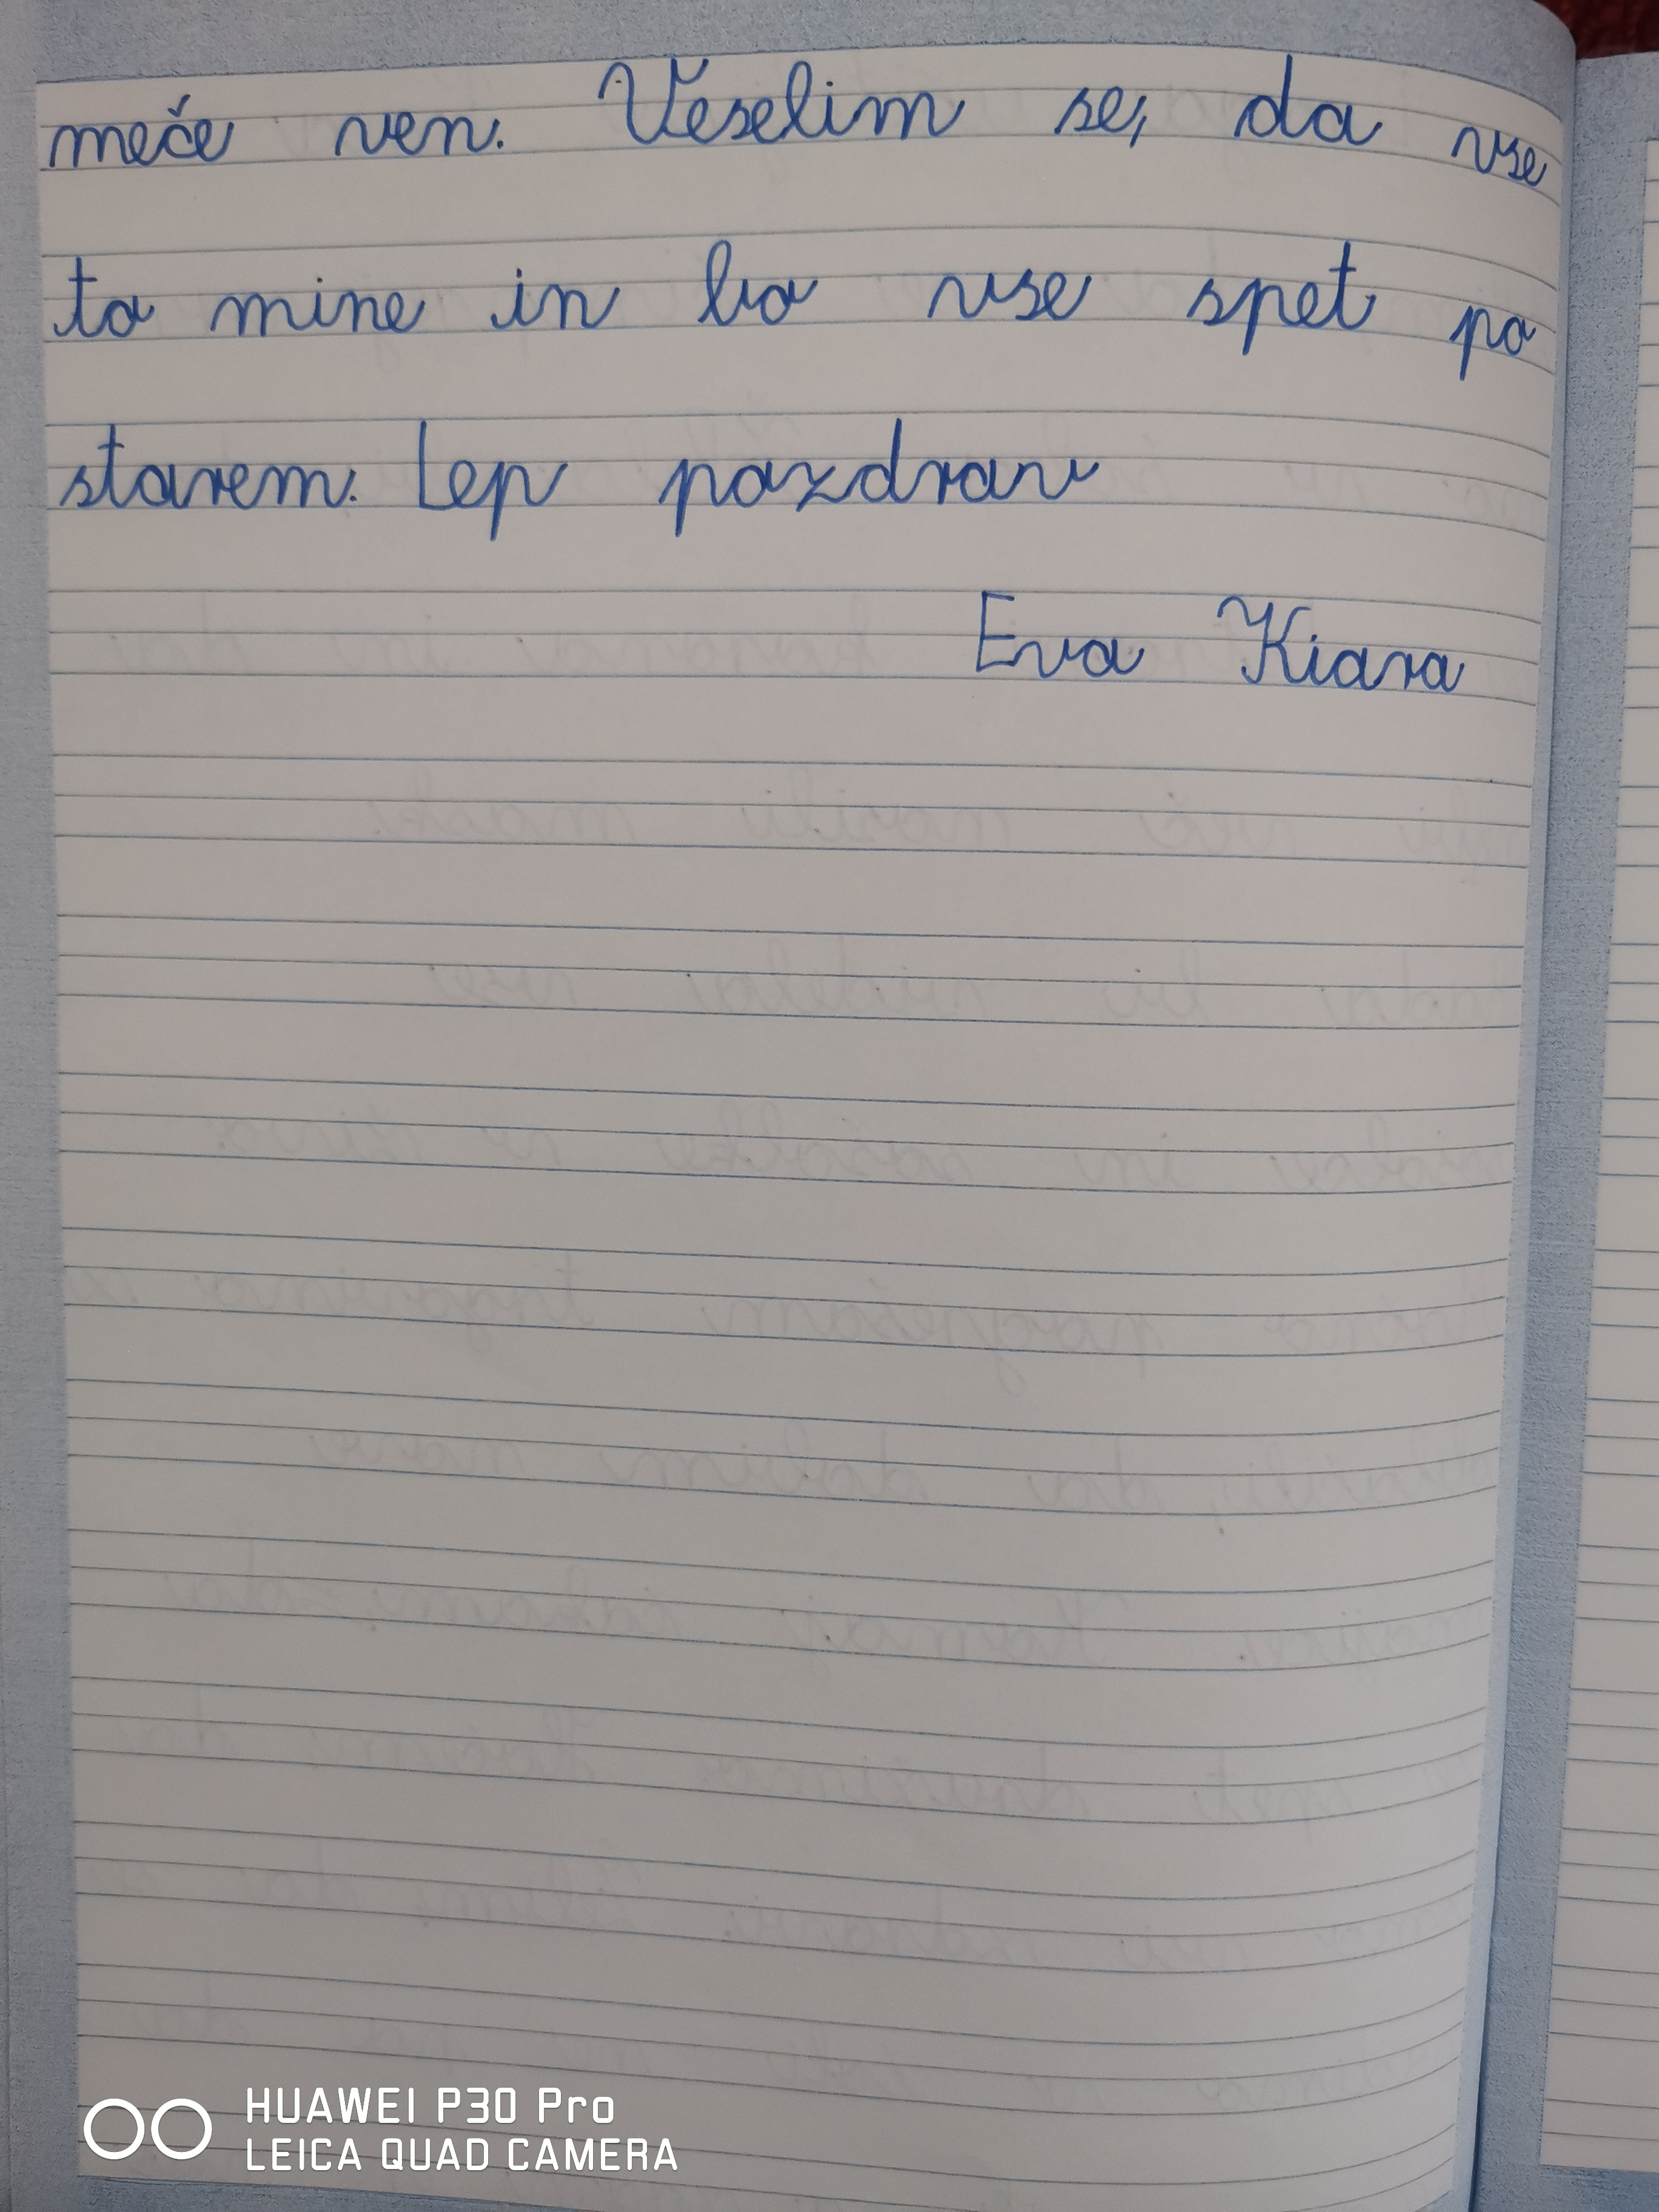 meče ven. Veselim se, da vse
ta mine in bo vse spet po
starem. Lep pozdrav
Eva Kiara
HUAWEI P30 Pro
LEICA QUAD CAMERA